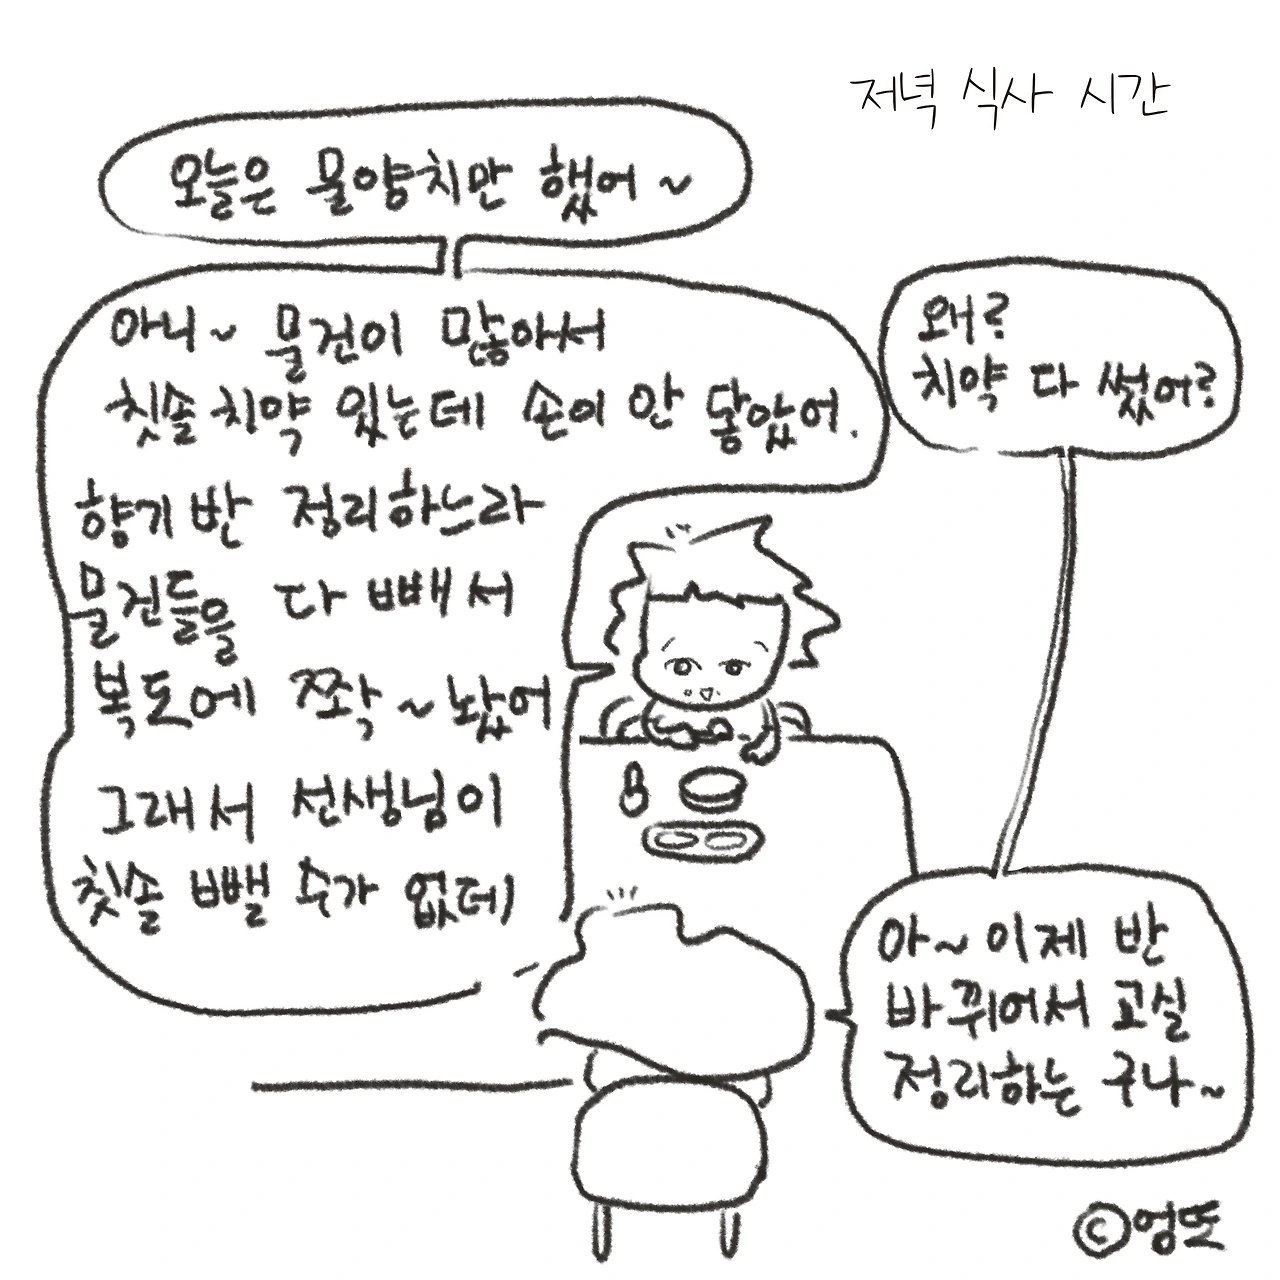 저녁 식사 시간
오늘은 물양치만 했어~
왜?
치약 다 썼어?
아니~ 물건이 많아서
칫솔치약 있는데 손이 안 닿았어.
향기반 정리하느라
물건들을 다 빼서
복도에 쫘악~놨어
그래서 선생님이
칫솔 뺄 수가 없데
아~이제 반
바뀌어서 교실
정리하는 구나~
©엉뚠